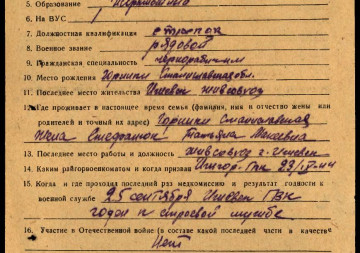 5. Образование
6. На ВУС
7. Должностная квалификация стрелок
8. Военное звание рядовой
9. Гражданская специальность чернорабочий
10. Место рождения Горники Станиславская обл.
11. Последнее место жительства Ижевск
12. Где проживает в настоящее время семья (фамилия, имя и отчество жены или
родителей и точный их адрес) Горники Станиславская
Жена Стефанюк Татьяна
13. Последнее место работы и должность г. Ижевск
14. Каким райгорвоенкоматом и когда призван
15. Когда и где проходил последний раз медкомиссию и результат годности к
военной службе 25 сентября Ижевск ГВК
годен к строевой службе
16. Участие в Отечественной войне (в составе какой последней части и качестве
Нет